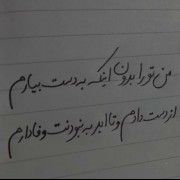 من تو را بدون اینکه به دست بیارم
از دست دادم و تا ابد به نبودنت وفادارم